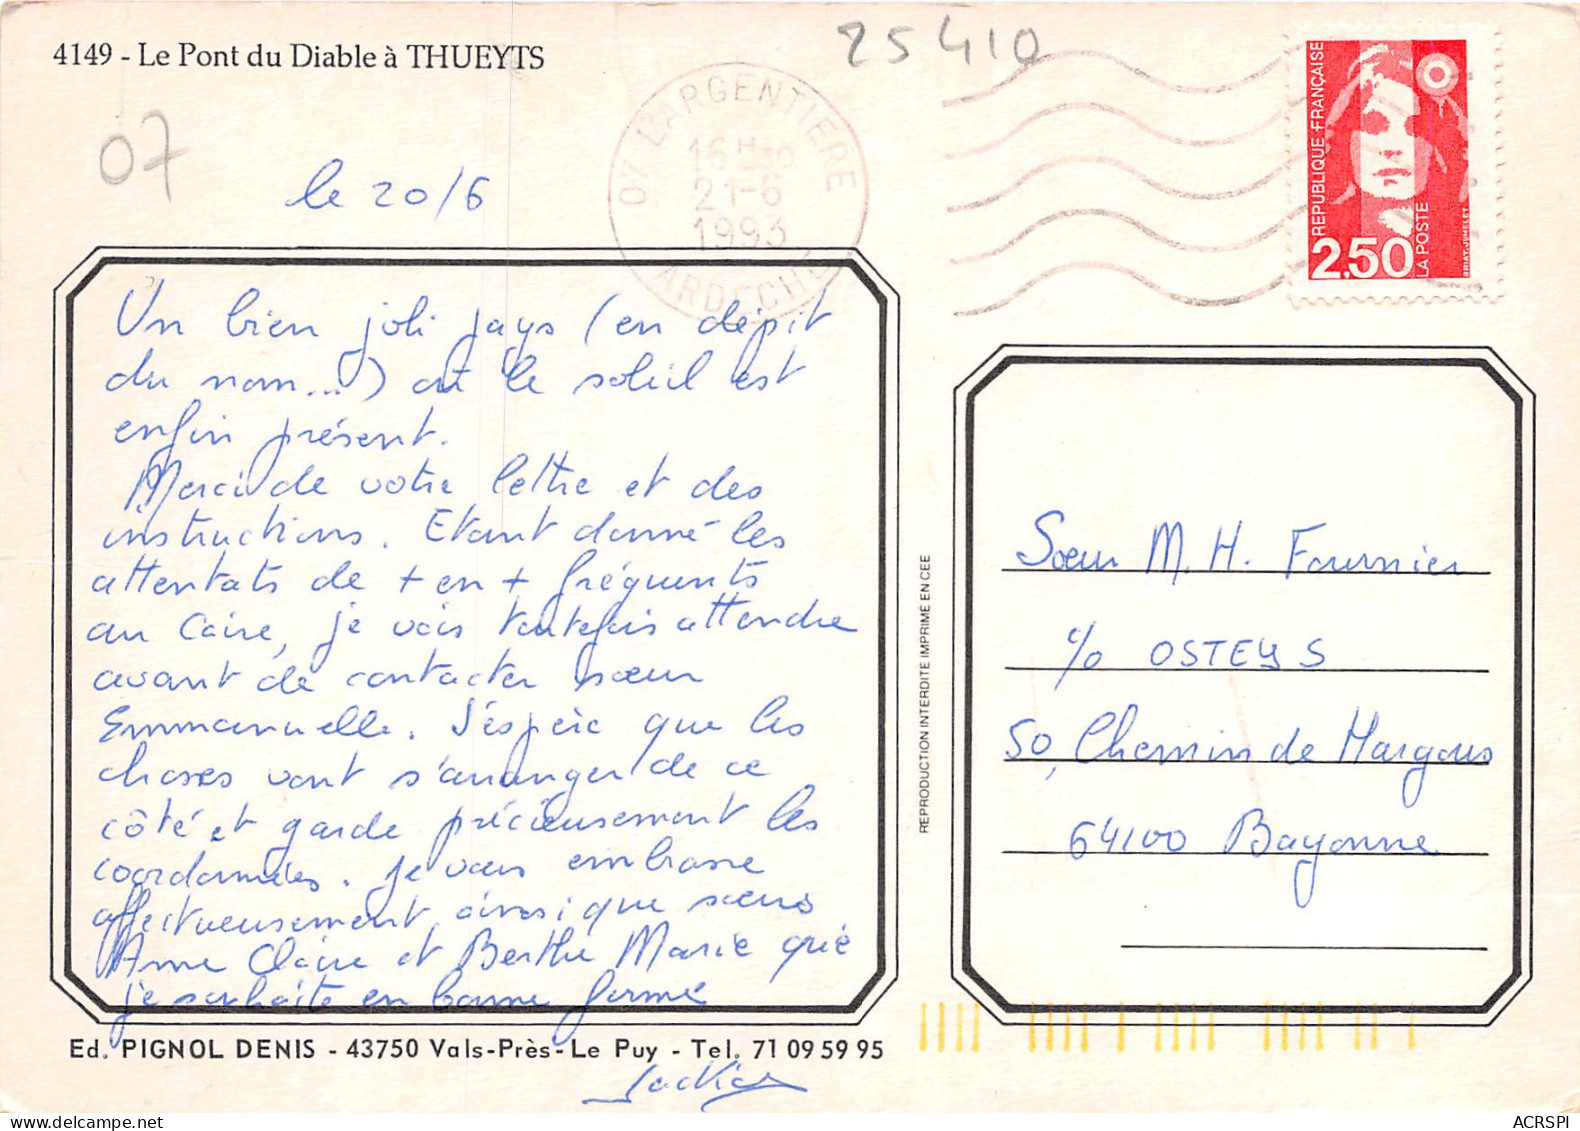 4149 - Le Pont du Diable à THUEYTS
25410
07
le 20/6
07 L'ARGENTIERE
16H
21-6
1993
ARDECHE
REPUBLIQUE FRANÇAISE
2,50
LA POSTE
BRIAT-JUMELET
Un bien joli pays (en dépit
du nom...) où le soleil est
enfin présent.
Merci de votre lettre et des
instructions. Etant donné les
attentats de + en + fréquents
au Caire, je vais toutefois attendre
avant de contacter soeur
Emmanuelle. J'espère que les
choses vont s'arranger de ce
côté et garde précieusement les
coordonnées. Je vous embrasse
affectueusement, ainsi que soeurs
Anne Claire et Berthe Marie que
je souhaite en bonne forme
Ed. PIGNOL DENIS - 43750 Vals-Près-Le Puy - Tel. 71 09 59 95
REPRODUCTION INTERDITE IMPRIME EN CEE
Soeur M. H. Fournier
c/o OSTEYS
50, Chemin de Hargous
64100 Bayonne
ACRSPI